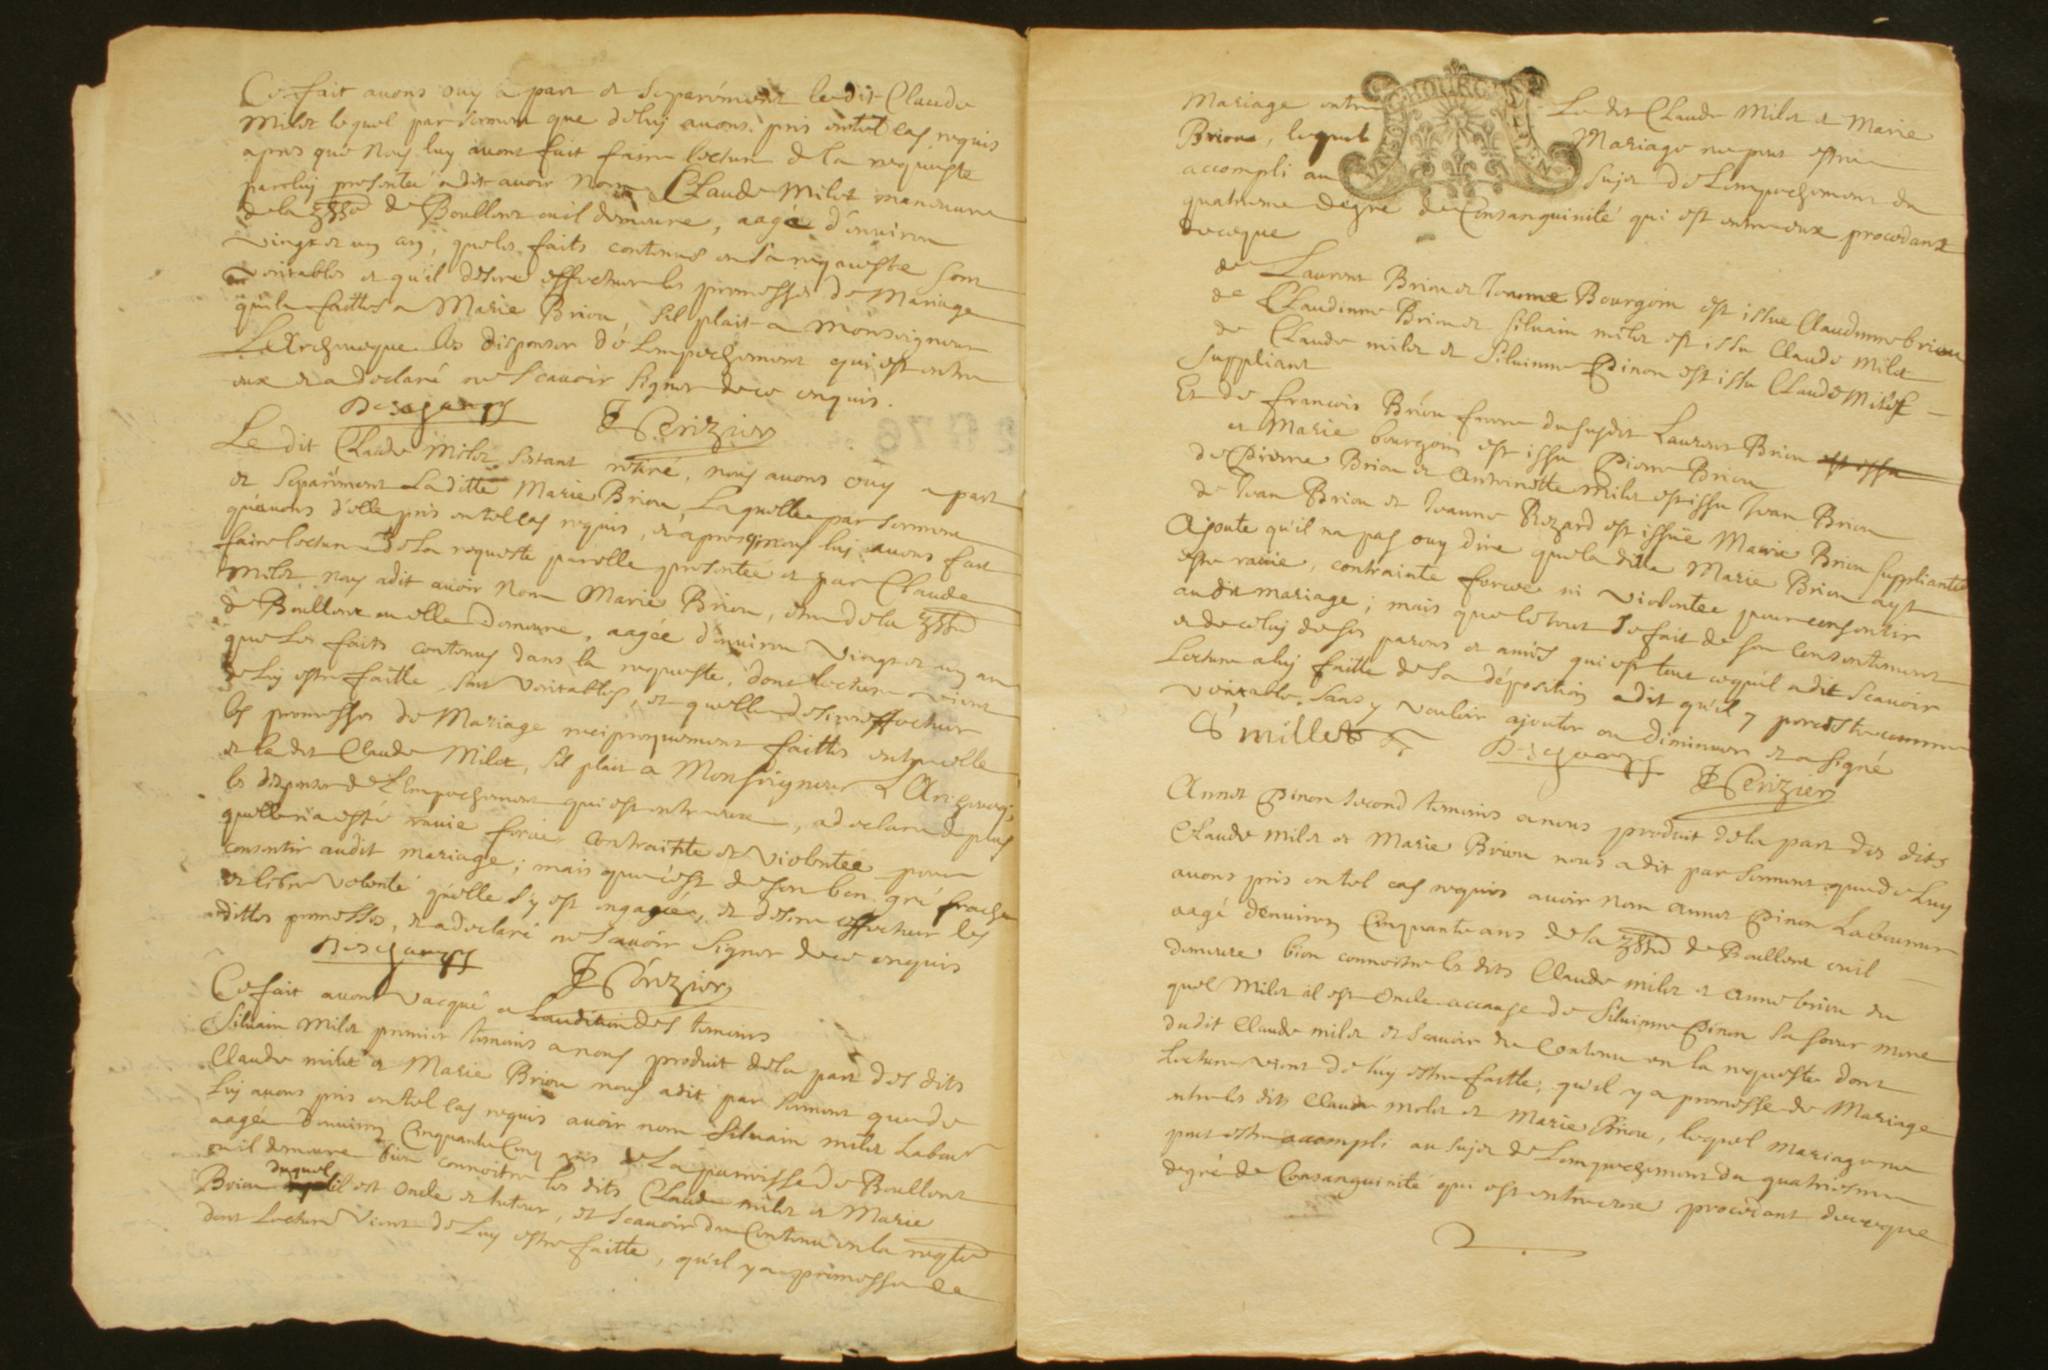 Ce fait avons ouy a part et separément le dit Claude
Milet lequel par serment que de luy avons pris en tel cas requis
apres que Nous luy avons fait faire lecture de la requeste
par luy presentée a dit avoir Nom Claude Milet manouvre
de la de Boullere ou il demeure, aagé d'environ
vingt et un an, que les faits contenus en sa requeste sont
veritables et qu'il desire effectuer les promesses de Mariage
qu'il a faittes a Marie Briou, s'il plait a Monseigneur
L'Archevesque les dispenser de L'empeschement qui est entre
eux et a declaré ne Scavoir Signer de ce enquis.
Deschamps Perizier
Le dit Claude Milet s'estant retiré, nous avons ouy a part
et separément La ditte Marie Briou, Laquelle par serment
qu'avons d'elle pris en tel cas requis, et apres que nous luy avons fait
faire lecture de la requeste par elle presentée et par Claude
Milet, nous a dit avoir Nom Marie Briou, de la
de Boullere ou elle demeure, aagée d'environ vingt et un an
que Les faits contenus dans la requeste, dont lecture vient
de luy estre faitte sont veritables, et quelle desire effectuer
les promesses de Mariage reciproquement faittes entre elle
et le dit Claude Milet, s'il plait a Monseigneur L'Archevesq;
les dispenser de L'Empeschement qui est entre eux, a declaré de plus
quelle n'a esté ravie forcée contrainte et violentée pour
consentir audit mariage; mais que c'est de son bon gré franche
et libre volonté qu'elle s'y est engagée, et desire effectuer les
dittes promesses, et a declaré ne scavoir Signer de ce enquis
Deschamps Perizier
Ce fait avons vacqué a Laudition des temoins
Silvain Milet premier temoins a nous produit de la part des dits
Claude milet et Marie Briou nous a dit par serment que de
luy avons pris en tel cas requis avoir nom Silvain milet Labour
aagée d'environ Cinquante Cinq ans de La paroisse de Boullere
ou il demeure bien connoitre les dits Claude milet et Marie
Briou duquel il est oncle et tuteur, et scavoir du Contenu en la reqte
dont Lecture vient de Luy estre faitte, qu'il y a promesse de
Mariage entre Le dit Claude Milet et Marie
Briou, lequel Mariage ne peut estre
accompli au sujet de L'empeschement du
quatrieme degre de Consanguinité qui est entre eux procedant
de ce que
de Laurent Briou et Jeanne Bourgoin est issue Claudinne briou
de Claudinne Briou et Silvain milet est issu Claude Milet
de Claude milet et Silvinne Pinon est issu Claude Milet
suppliant
Et de francois Briou frere du susdit Laurent Briou est issu
et Marie bourgoin est issu Pierre Briou
de Pierre Briou et Antoinette Milet est issu Jean Briou
de Jean Briou et Jeanne Rozard est issüe Marie Briou suppliante
Ajoute qu'il na pas ouy dire que la ditte Marie Briou ayt
esté ravie, contrainte forcée ni violentée pour consentir
au dit mariage; mais que le tout se fait de son consentement
et de celuy de ses parens et amis qui est tout ce qu'il a dit scavoir
Lecture a luy faitte de sa déposition a dit qu'il y persiste comme
veritable, sans y vouloir ajouter ou diminuer et a signé
S millet Deschamps Perizier
Annet Pinon second temoins a nous produit de la part des dits
Claude milet et Marie Briou nous a dit par serment que de Luy
avons pris en tel cas requis avoir nom Annet Pinon Laboureur
aagé d'environ Cinquante ans de la de Boullere ou il
demeure bien connoitre les dits Claude milet et anne briou du
quel Milet il est oncle accause de Silvinne Pinon sa soeur mere
dudit Claude milet et scavoir du Contenu en la requeste dont
Lecture vient de luy estre faitte, qu'il y a promesse de Mariage
entre les dits Claude milet et Marie Briou, lequel mariage ne
peut estre accompli au sujet de L'empeschement du quatriesme
degré de Consanguinité qui est entre eux procedant de ce que